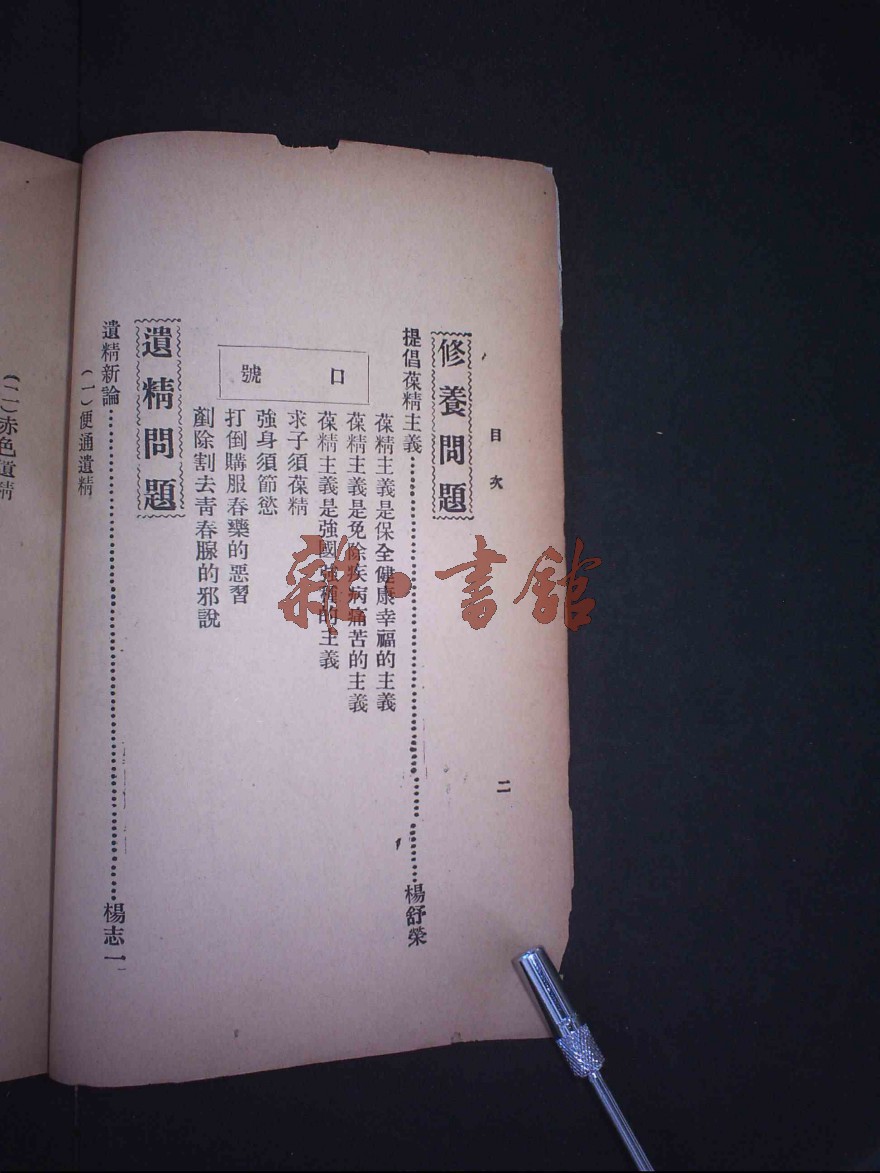 目次
二
修養問題
提倡葆精主義……楊舒榮
口號
葆精主義是保全健康幸福的主義
葆精主義是免除疾病痛苦的主義
葆精主義是強國強種的主義
求子須葆精
強身須節慾
打倒購服春藥的惡習
剷除割去靑春腺的邪說
遺精問題
遺精新論……楊志一
(一)便通遺精
(二)赤色遺精
雜·書館